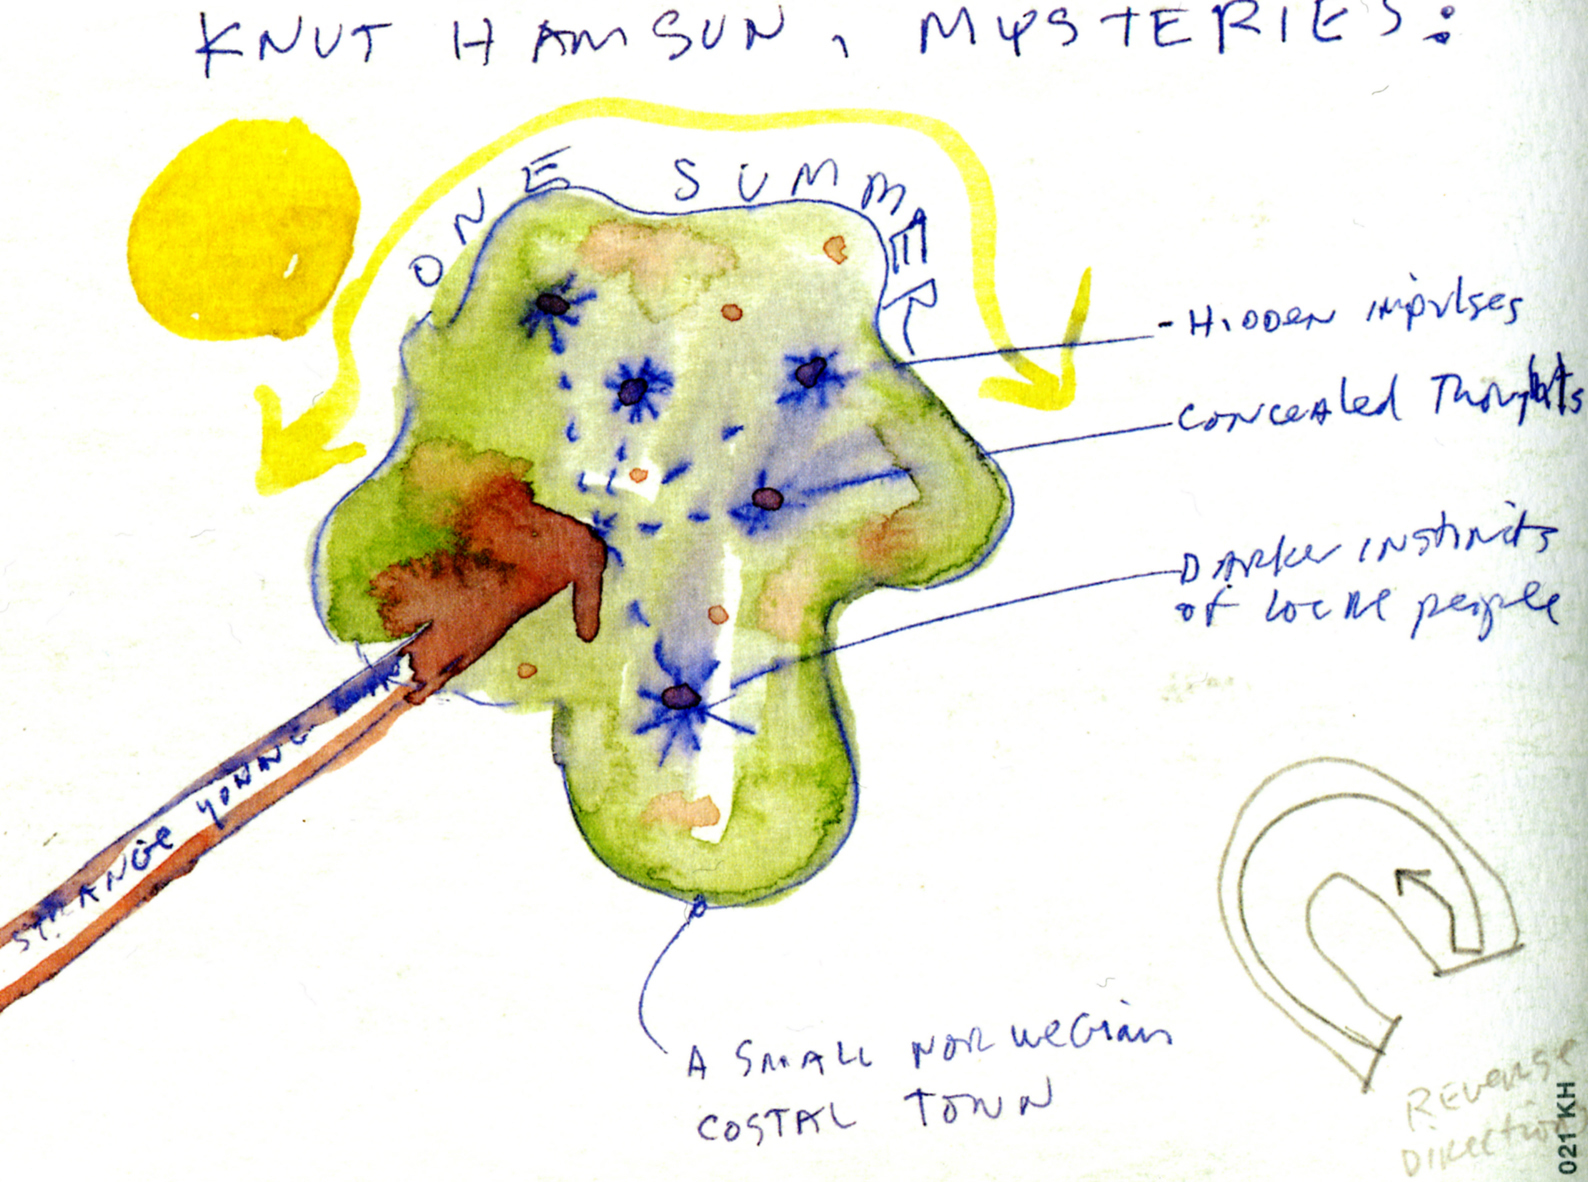 KNUT HAMSUN, MYSTERIES:
ONE SUMMER
- Hidden impulses
Concealed Thoughts
Darker instincts
of local people
STRANGE YOUNG
A SMALL NORWEGIAN
COSTAL TOWN
REVERSE
DIRECTION
021 KH